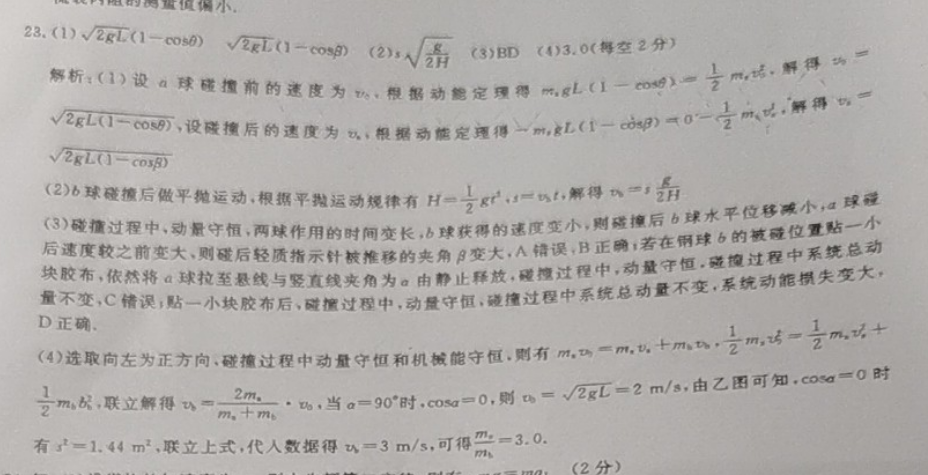 测量值偏小.
23.(1)√2gL(1-cosθ) √2gL(1-cosβ) (2)s√g/2H (3)BD (4)3.0(每空2分)
解析:(1)设a球碰撞前的速度为v₀,根据动能定理得mₐgL(1-cosθ)=1/2mₐv₀²,解得v₀=
√2gL(1-cosθ),设碰撞后的速度为vₐ,根据动能定理得-mₐgL(1-cosβ)=0-1/2mₐvₐ²,解得vₐ=
√2gL(1-cosβ)
(2)b球碰撞后做平抛运动,根据平抛运动规律有H=1/2gt²,s=v_b t,解得v_b=s g/2H
(3)碰撞过程中,动量守恒,两球作用的时间变长,b球获得的速度变小,则碰撞后b球水平位移减小,a球碰
后速度较之前变大,则碰后轻质指示针被推移的夹角β变大,A错误,B正确;若在钢球b的被碰位置贴一小
块胶布,依然将a球拉至悬线与竖直线夹角为α由静止释放,碰撞过程中,动量守恒,碰撞过程中系统总动
量不变,C错误;贴一小块胶布后、碰撞过程中,动量守恒,碰撞过程中系统总动量不变,系统动能损失变大,
D正确.
(4)选取向左为正方向,碰撞过程中动量守恒和机械能守恒,则有mₐv₀=mₐvₐ+m_b v_b,1/2mₐv₀²=1/2mₐvₐ²+
1/2m_b b_b²,联立解得v_b=2mₐ/(mₐ+m_b)·v₀,当α=90°时,cosα=0,则v₀=√2gL=2 m/s,由乙图可知,cosα=0时
有s²=1.44 m²,联立上式,代人数据得v_b=3 m/s,可得mₐ/m_b=3.0.
(2分)